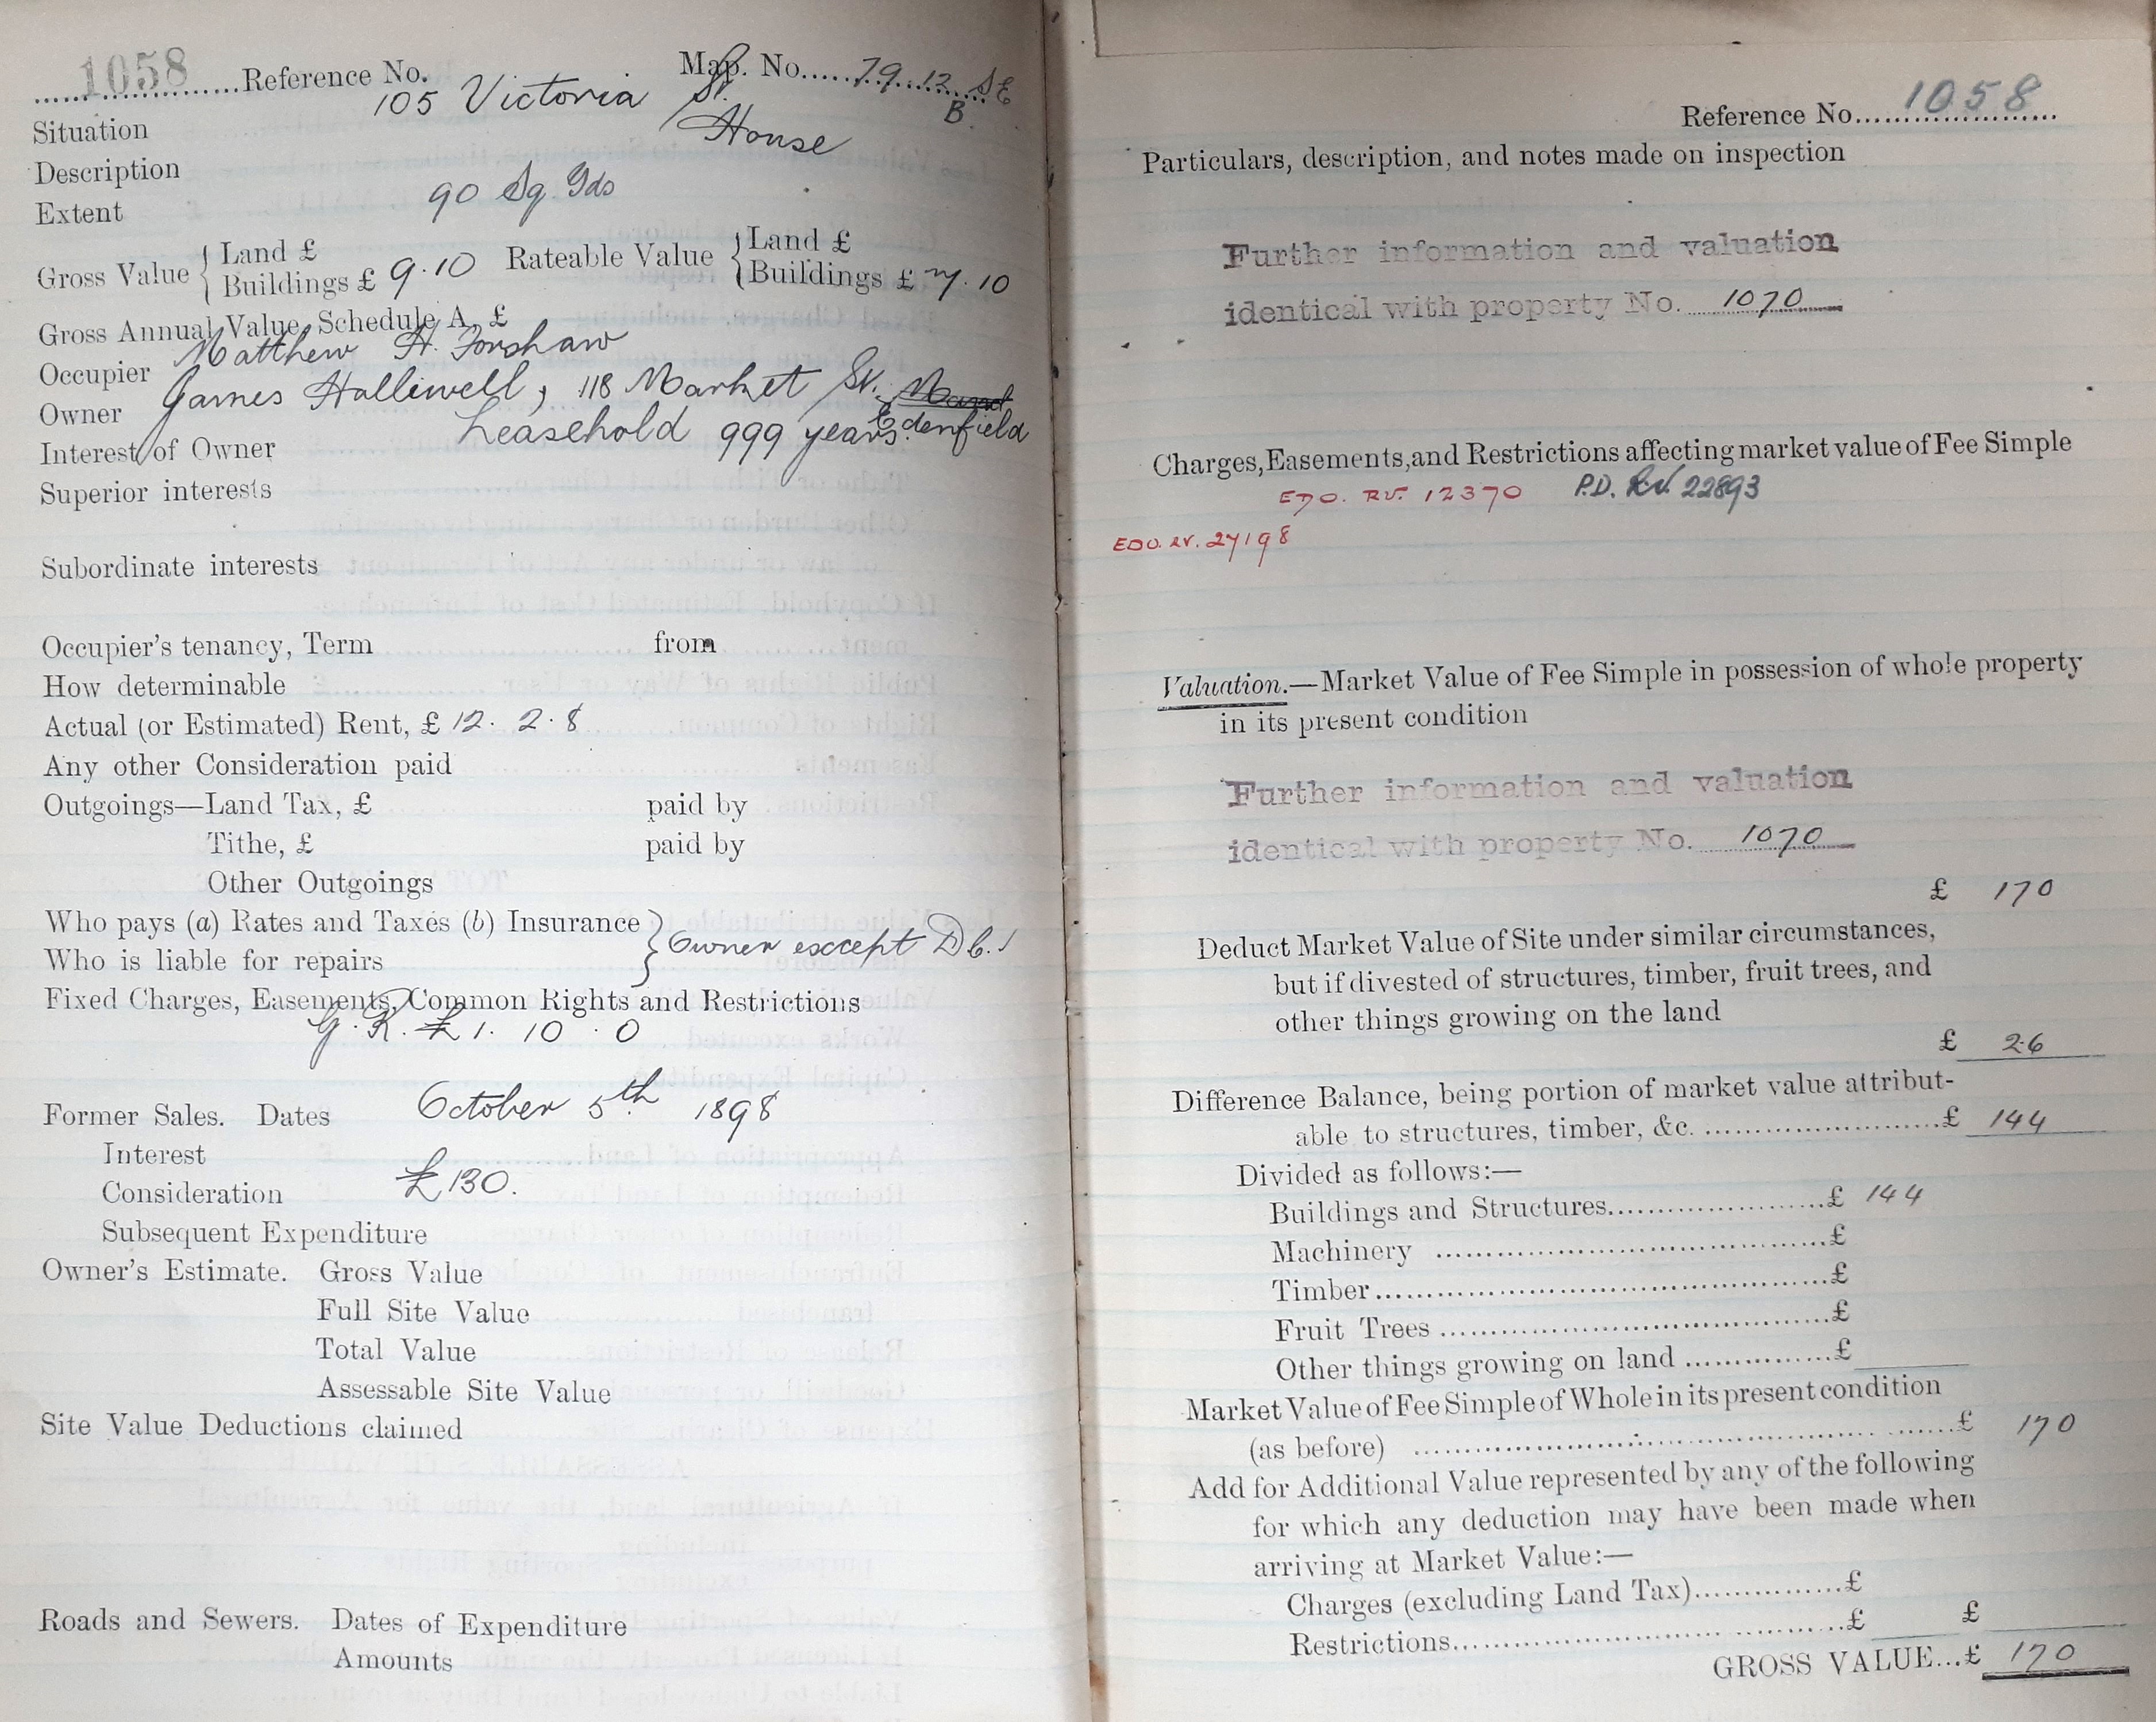 1058 Reference No. Map. No. 79.12 SE
B.
Situation 105 Victoria St.
Description House
Extent 90 Sq Yds
Gross Value { Land £ Rateable Value { Land £
Buildings £ 9.10 Buildings £ 7.10
Gross Annual Value, Schedule A, £
Occupier Matthew H. Forshaw
Owner James Halliwell, 118 Market St. Edenfield
Interest of Owner Leasehold 999 years
Superior interests
Subordinate interests
Occupier's tenancy, Term from
How determinable
Actual (or Estimated) Rent, £ 12. 2. 8
Any other Consideration paid
Outgoings—Land Tax, £ paid by
Tithe, £ paid by
Other Outgoings
Who pays (a) Rates and Taxes (b) Insurance } Owner except
Who is liable for repairs
Fixed Charges, Easements, Common Rights and Restrictions
G.R. £1. 10. 0
Former Sales. Dates October 5th 1898
Interest
Consideration £130.
Subsequent Expenditure
Owner's Estimate. Gross Value
Full Site Value
Total Value
Assessable Site Value
Site Value Deductions claimed
Roads and Sewers. Dates of Expenditure
Amounts
Reference No. 1058
Particulars, description, and notes made on inspection
Further information and valuation
identical with property No. 1070
Charges, Easements, and Restrictions affecting market value of Fee Simple
EDO. RV. 12370 P.D. RV. 22893
EDO. RV. 27198
Valuation.—Market Value of Fee Simple in possession of whole property
in its present condition
Further information and valuation
identical with property No. 1070
£ 170
Deduct Market Value of Site under similar circumstances,
but if divested of structures, timber, fruit trees, and
other things growing on the land
£ 26
Difference Balance, being portion of market value attribut-
able to structures, timber, &c. £ 144
Divided as follows:—
Buildings and Structures £ 144
Machinery £
Timber £
Fruit Trees £
Other things growing on land £
Market Value of Fee Simple of Whole in its present condition
(as before) £ 170
Add for Additional Value represented by any of the following
for which any deduction may have been made when
arriving at Market Value:—
Charges (excluding Land Tax) £
Restrictions £ £
GROSS VALUE...£ 170